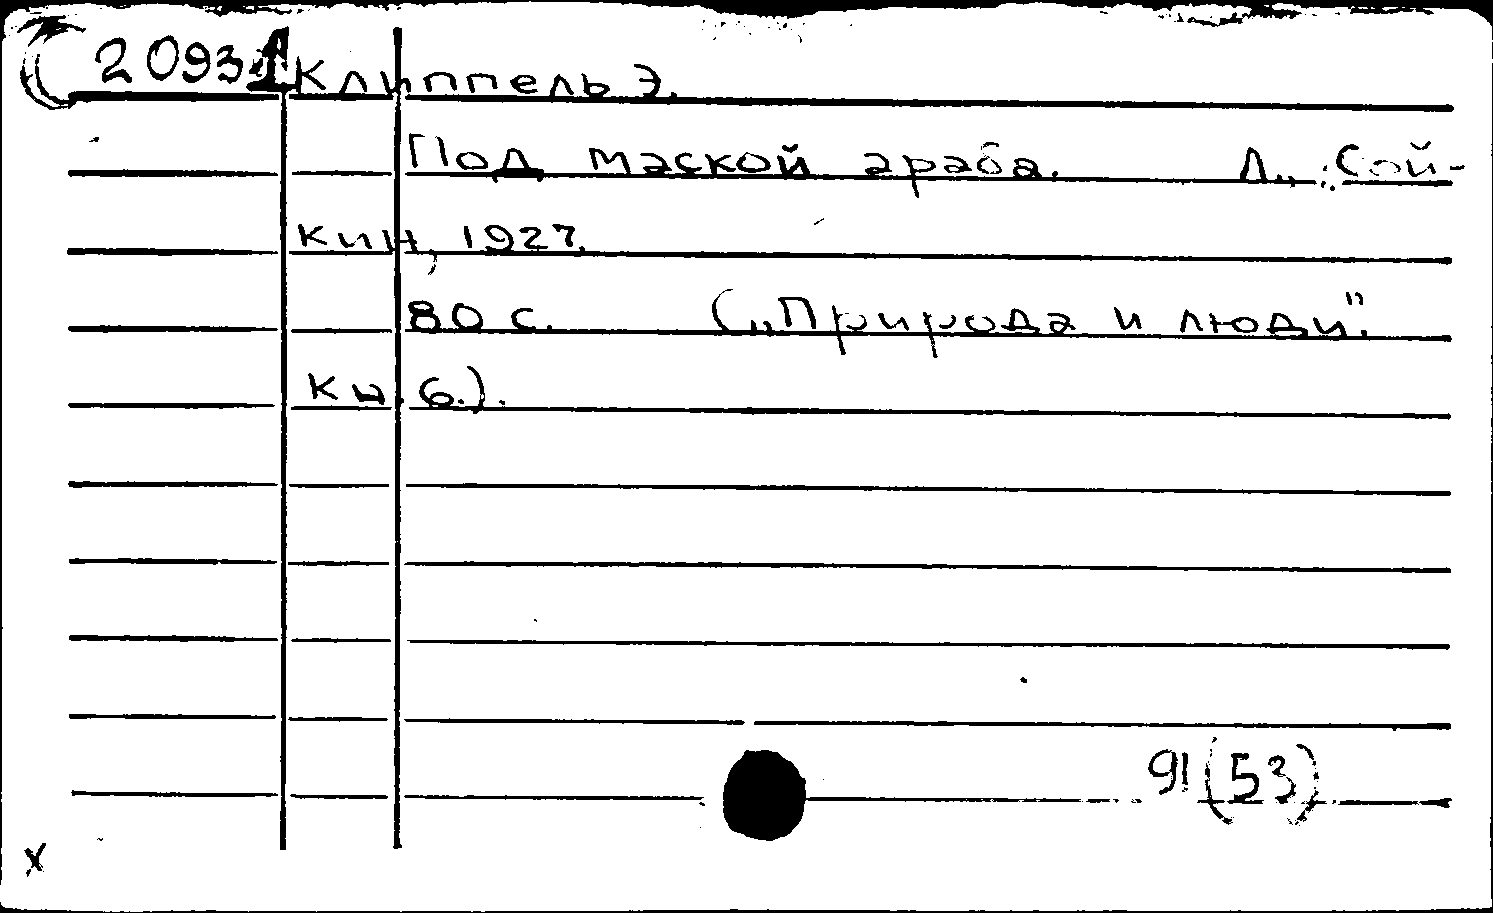 20931 Клиппель Э.
Под маской араба. Л., Сой-
кин, 1927.
80 с. („Природа и люди".
Кн. 6.).
91(53)
x